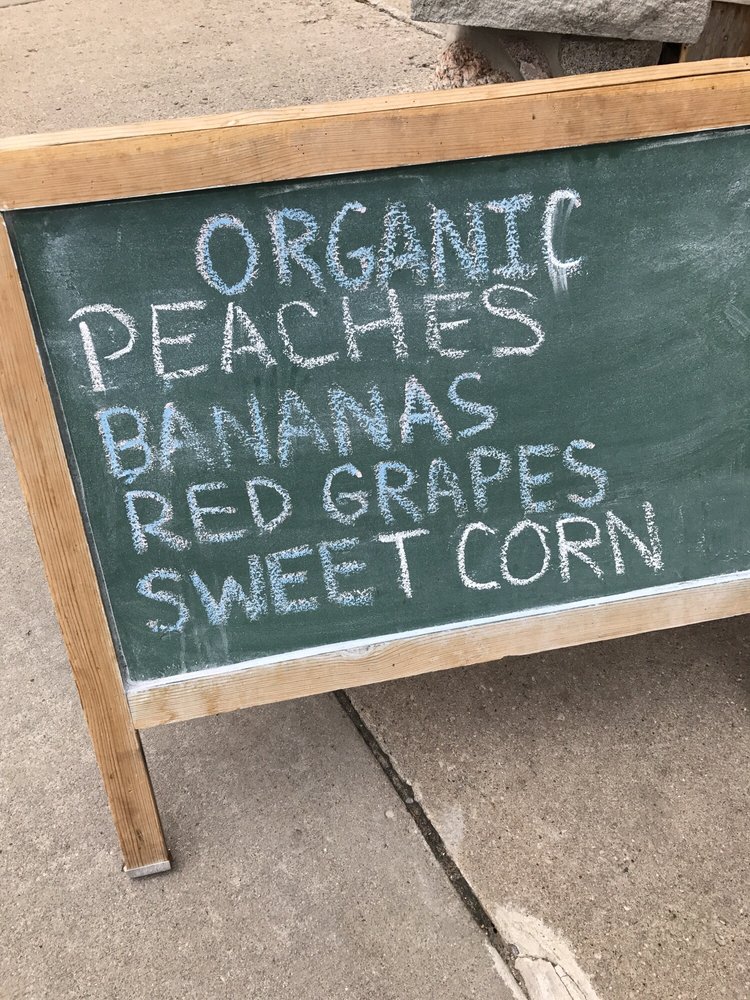 ORGANIC
PEACHES
BANANAS
RED GRAPES
SWEET CORN